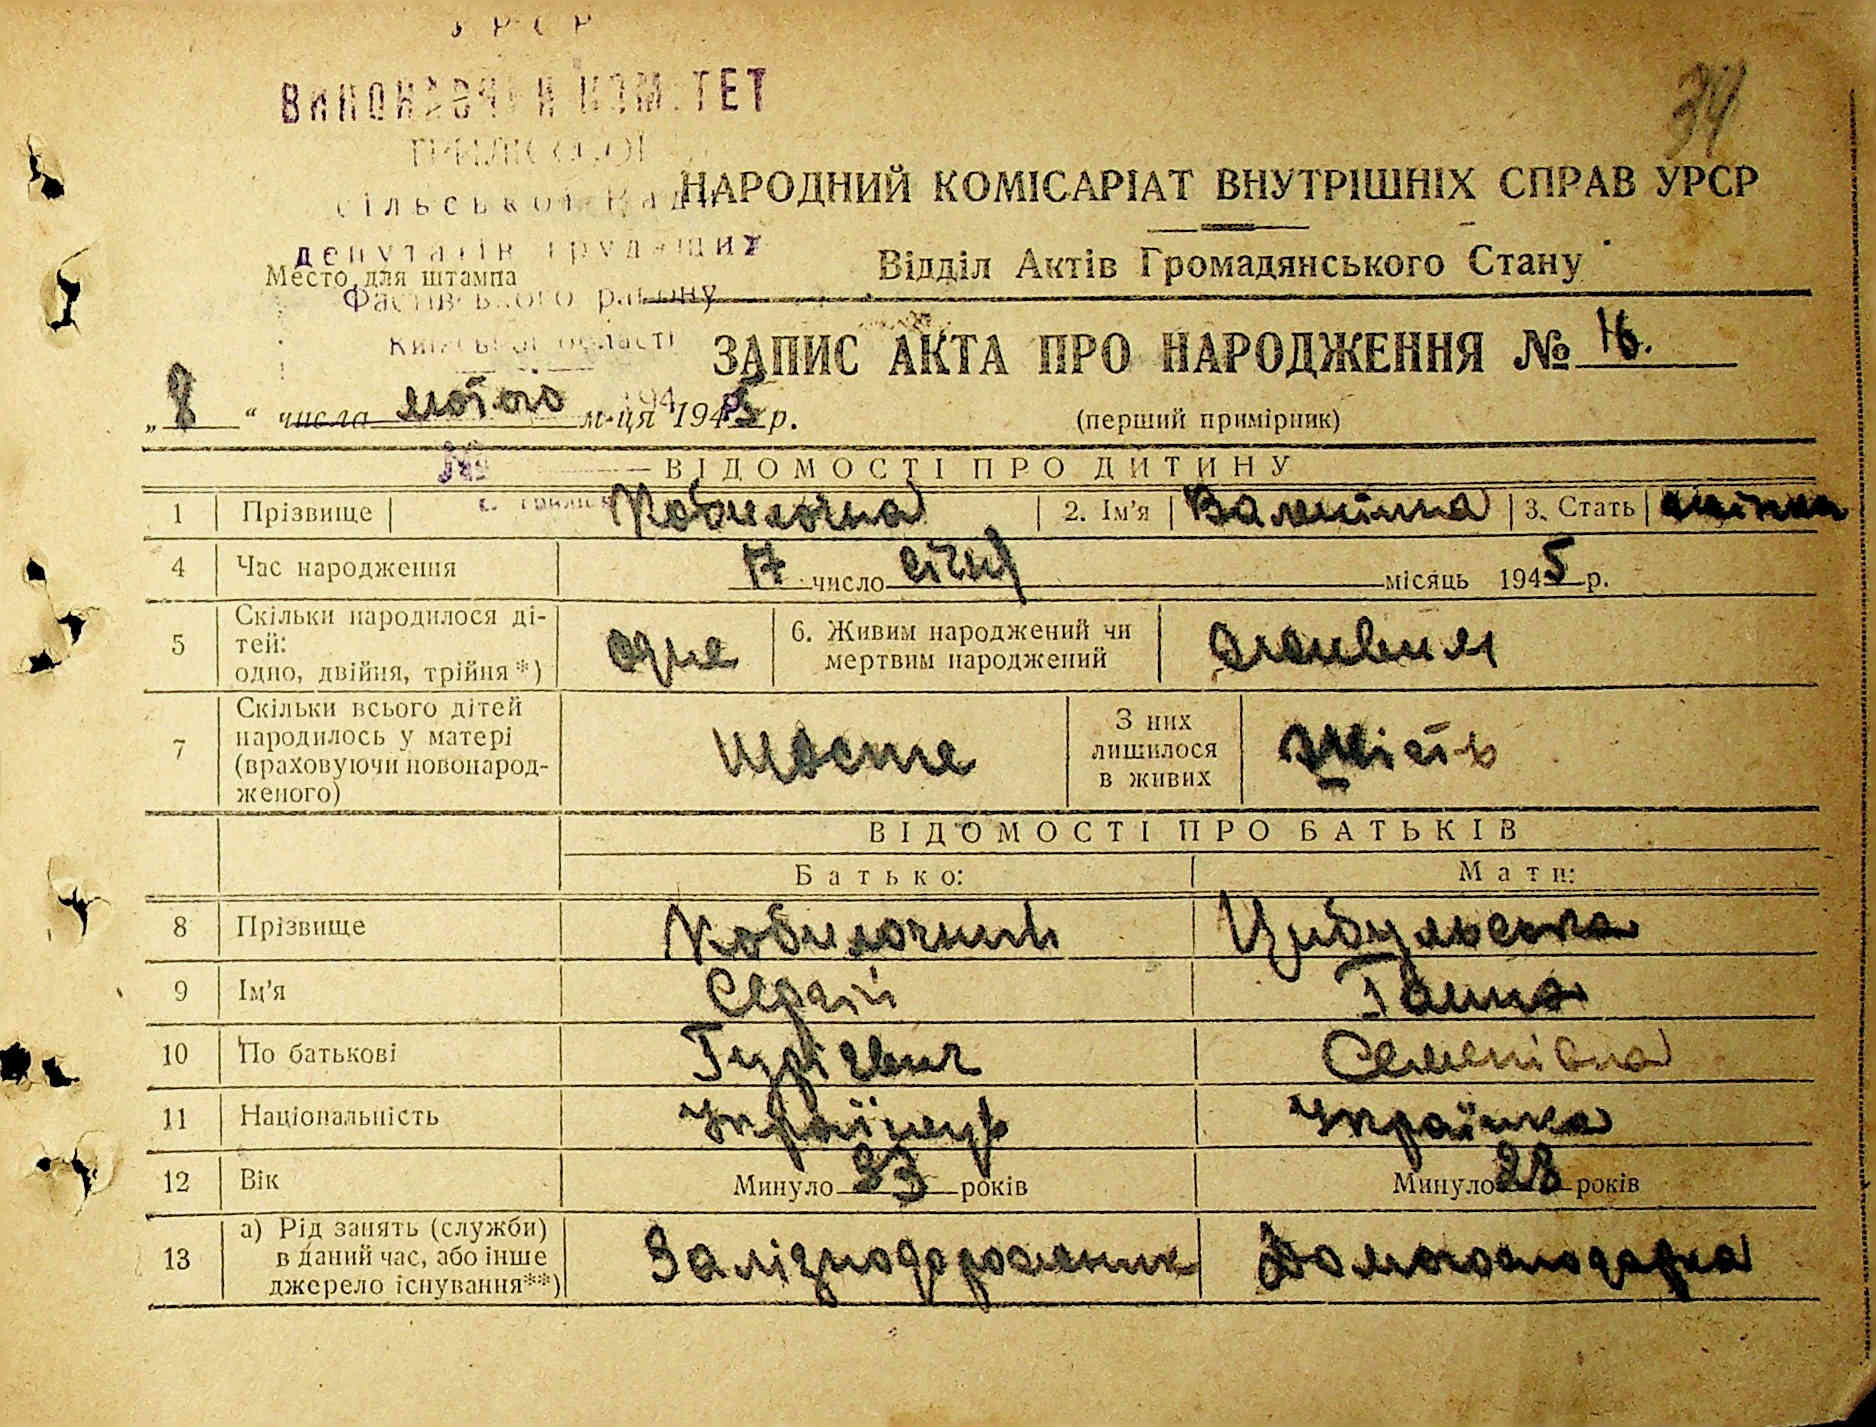 УРСР
ВИКОНАВЧИЙ КОМІТЕТ
сільської Ради
депутатів трудящих
Фастівського району
Київської області
34
НАРОДНИЙ КОМІСАРІАТ ВНУТРІШНІХ СПРАВ УРСР
Место для штампа
Відділ Актів Громадянського Стану
ЗАПИС АКТА ПРО НАРОДЖЕННЯ № 16.
„ 8 “ числа лютого м-ця 1945 р.
(перший примірник)
№
ВІДОМОСТІ ПРО ДИТИНУ
1 Прізвище Кобилочна 2. Ім'я Валентина 3. Стать жінка
4 Час народження 17 число січня місяць 1945 р.
5 Скільки народилося ді-
тей:
одно, двійня, трійня *) одне
6. Живим народжений чи
мертвим народжений живим
7 Скільки всього дітей
народилось у матері
(враховуючи новонарод-
женого) шосте
З них
лишилося
в живих шість
ВІДОМОСТІ ПРО БАТЬКІВ
Батько: Мати:
8 Прізвище Кобилочний Цибульська
9 Ім'я Сергій Ганна
10 По батькові Гурієвич Семенівна
11 Національність Українець Українка
12 Вік Минуло 33 років Минуло 28 років
13 а) Рід занять (служби)
в даний час, або інше
джерело існування**) Залізнодорожник Домогосподарка